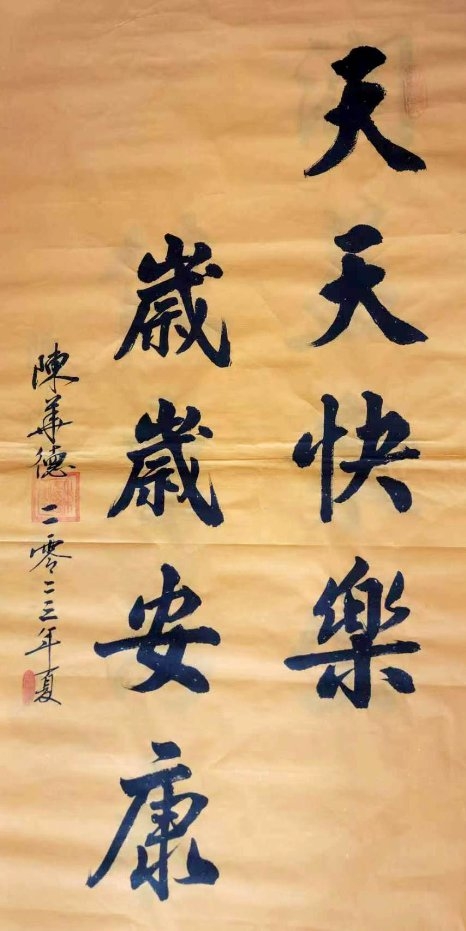 天天快樂
歲歲安康
陳華德
二零二三年夏